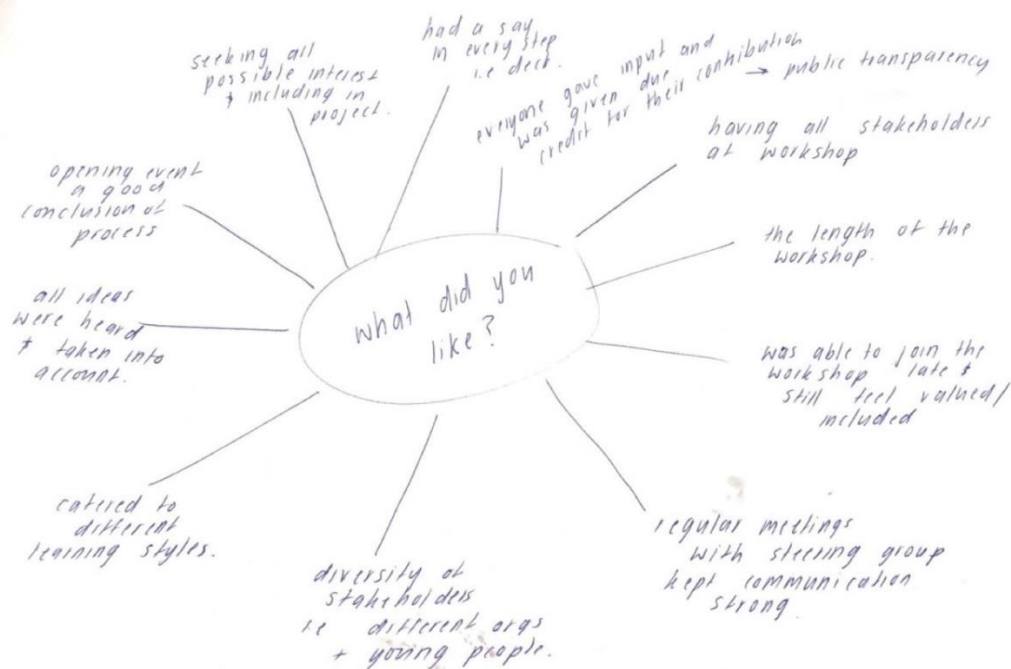 what did you
like?
had a say
in every step
i.e dect.
everyone gave input and
was given due
credit for their contribution
→ public transparency
having all stakeholders
at workshop
the length of the
workshop.
was able to join the
workshop late &
still feel valued/
included
regular meetings
with steering group
kept communication
strong
diversity of
stakeholders
i.e different orgs
+ young people.
catered to
different
learning styles.
all ideas
were heard
& taken into
account.
opening event
a good
conclusion of
process
seeking all
possible interest
& including in
project.